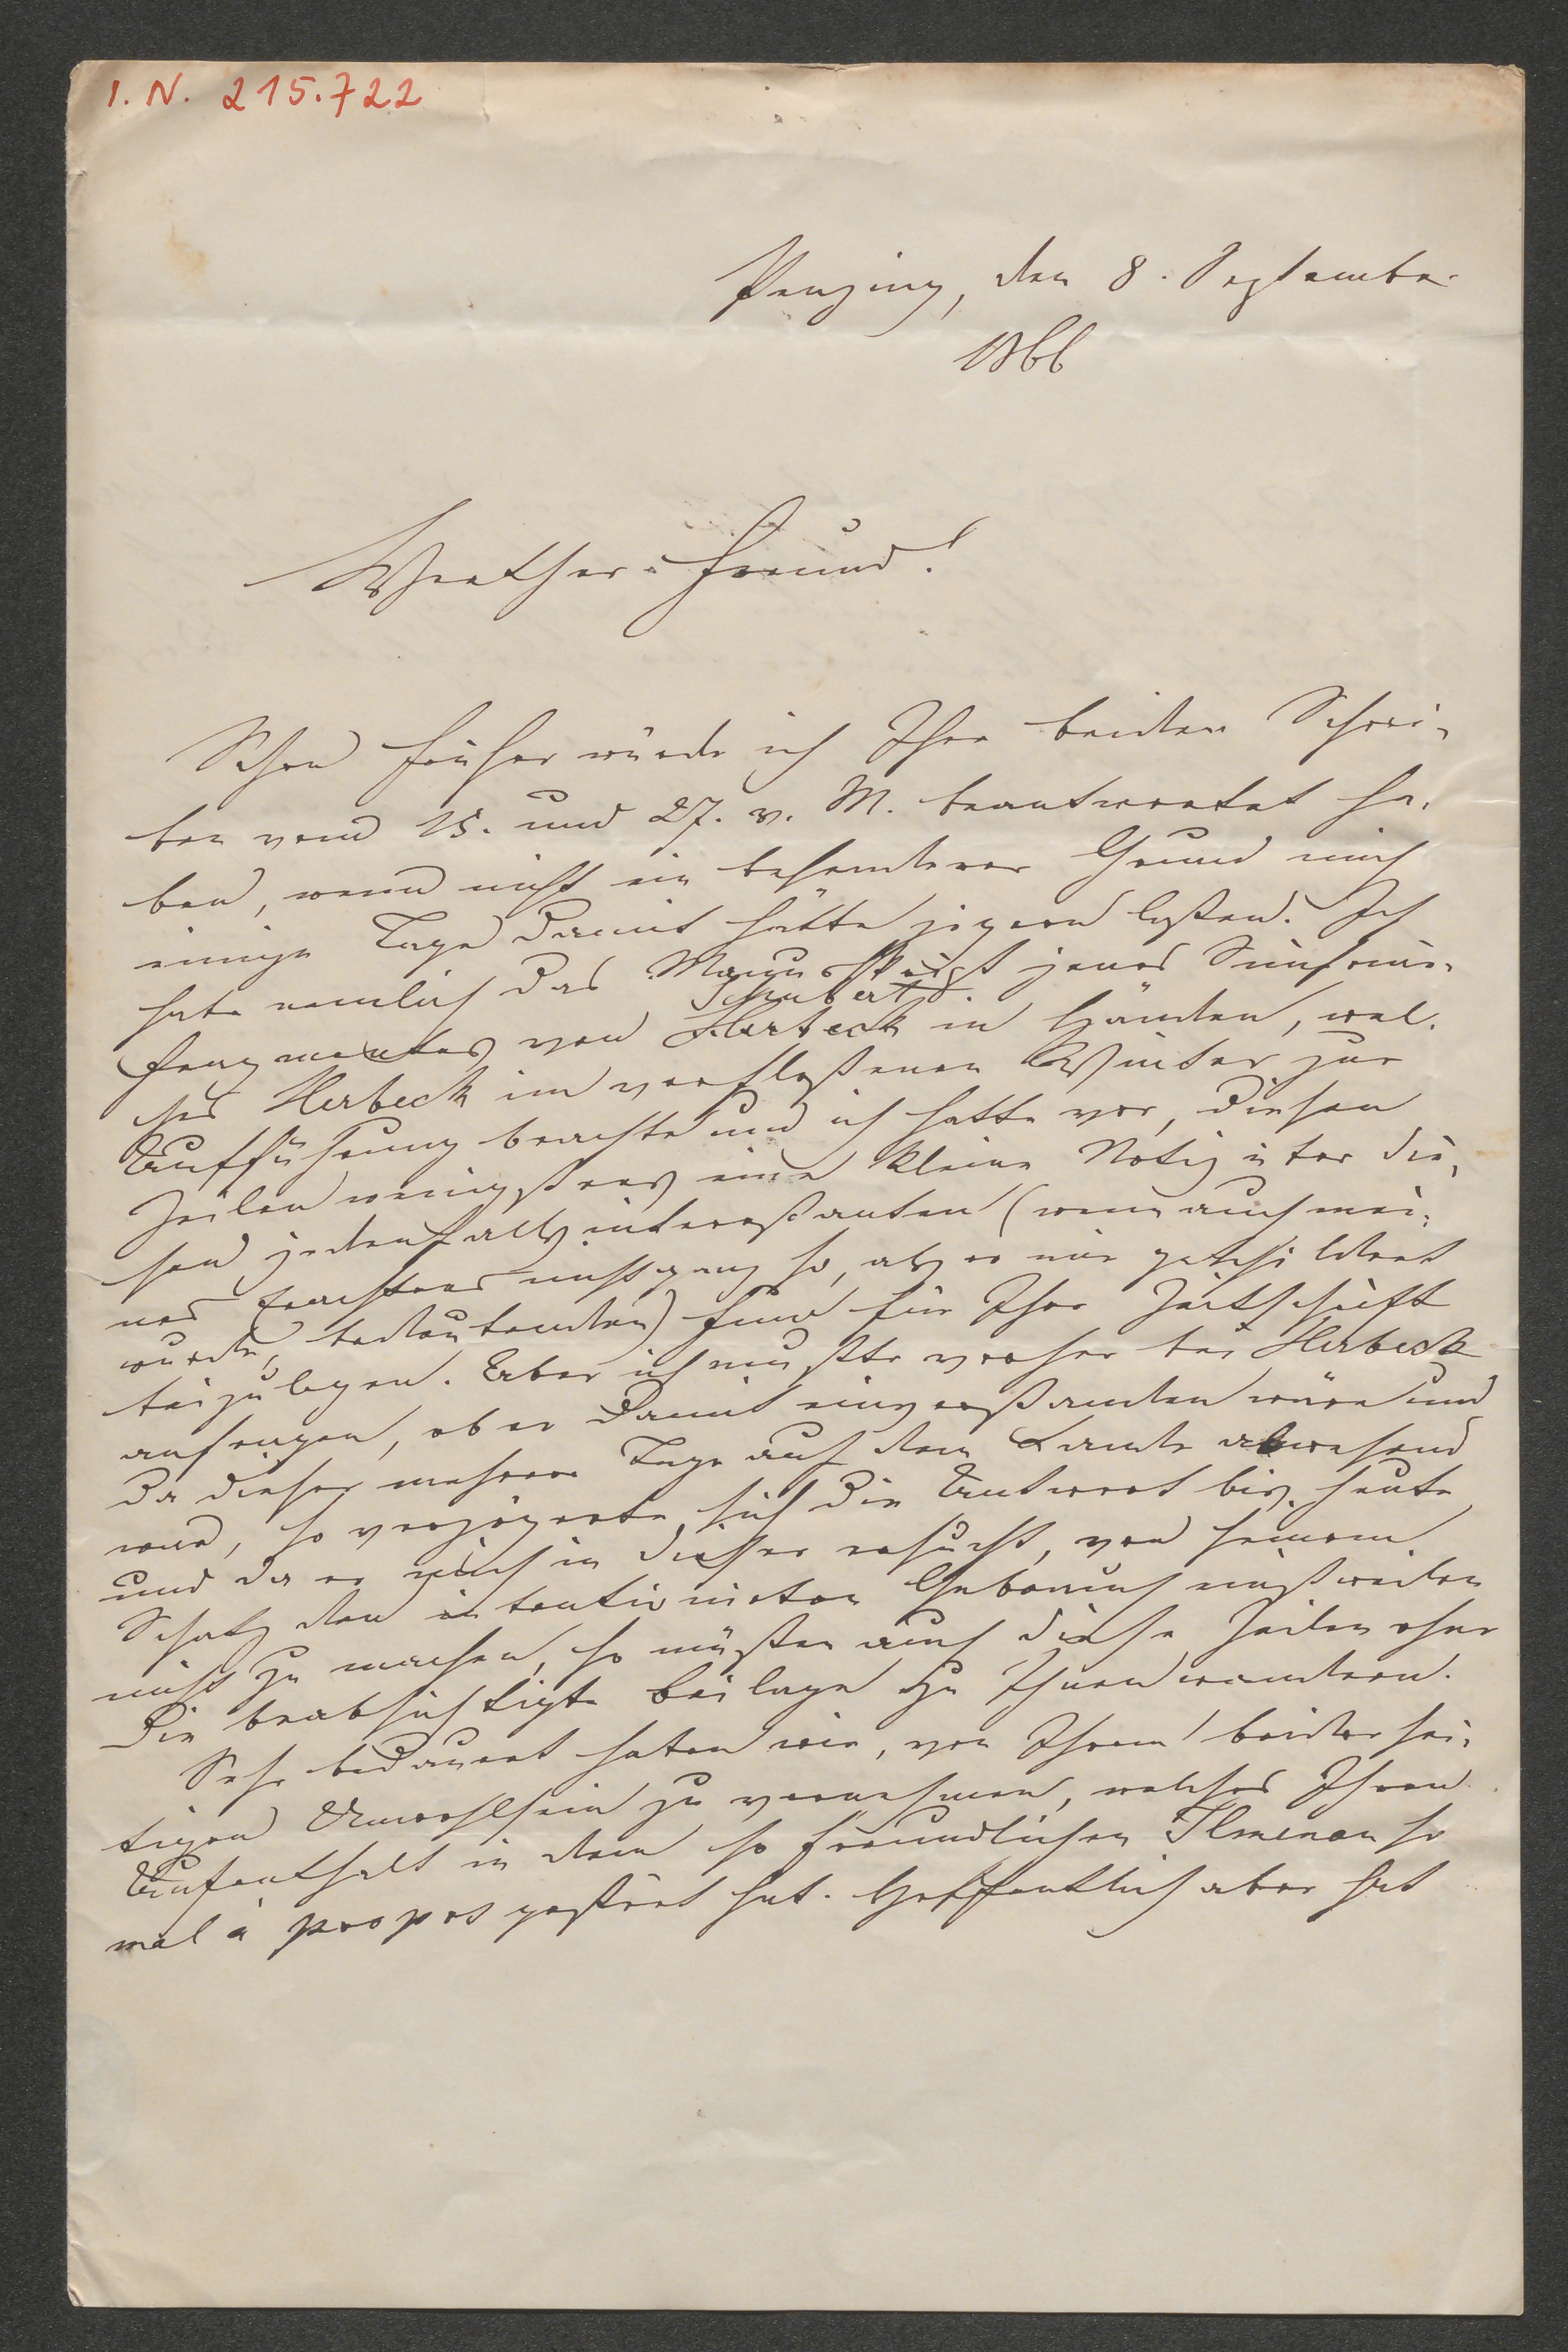 I. N. 215.722
Penzing, den 8. September
1866
Werther Freund!
Schon früher würde ich Ihre beiden Schrei-
ben vom 15. und 27. v. M. beantwortet ha-
ben, wenn nicht ein besonderer Grund mich
einige Tage damit hätte zögern laßen. Ich
habe nemlich das Manuskript jenes Sinfonie-
Schubert
fragmentes von Herbeck in Händen, wel-
ches Herbeck im verfloßenen Winter zur
Aufführung brachte und ich hatte vor, diesen
Zeilen wenigstens eine kleine Notiz über die-
sen jedenfalls intereßanten (wenn auch mei-
nes Erachtens nicht ganz so, als er mir geschildert
wurde, bedeutenden) Fund für Ihre Zeitschrift
beizulegen. Aber ich mußte vorher bei Herbeck
anfragen, ob er damit einverstanden wäre und
da dieser mehrere Tage auf dem Lande abwesend
war, so verzögerte sich die Antwort bis heute
und da er mich in dieser ersucht, von seinem
Schatz den intentionirten Gebrauch einstweilen
nicht zu machen, so müßen auch diese Zeilen ohne
die beabsichtigte Beilage zu Ihnen wandern.
Sehr bedauert haben wir, von Ihrem beidersei-
tigen Unwohlsein zu vernehmen, welches Ihren
Aufenthalt in dem so freundlichen Ilmenau so
mal à propos gestört hat. Hoffentlich aber hat